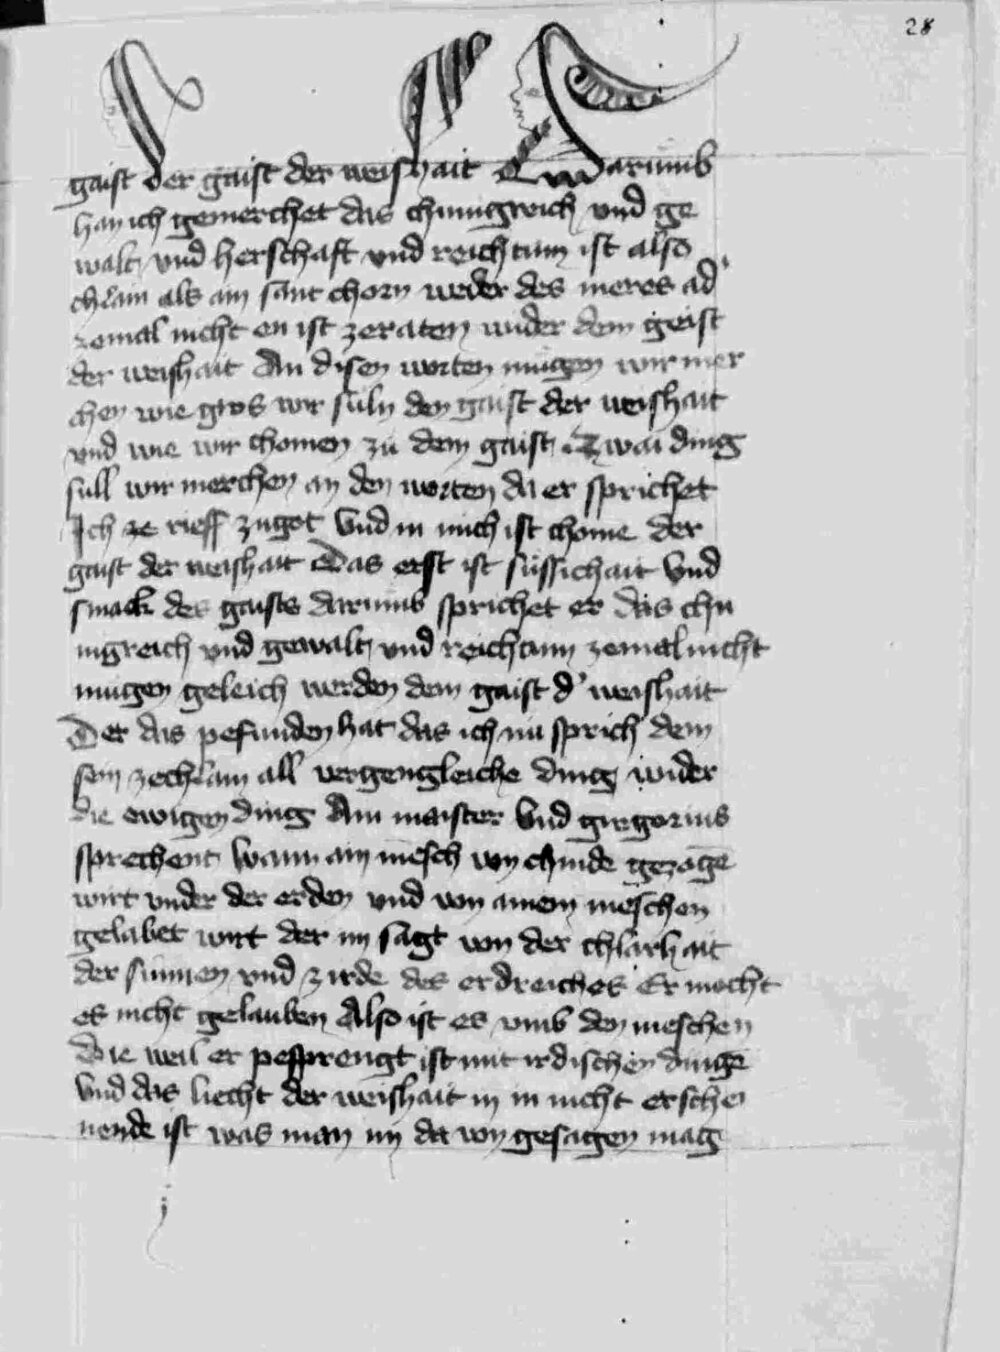 28
gaist der gaist der weishait Darumb
han ich gemerchet das chunigreich vnd ge
walt vnd herschaft vnd reichtum ist also
chlain als ain sant chorn weder des meres ad'
zemal nicht en ist zeraten wider dem geist
der weishait An disen worten mugen wir mer
chen wie gros wir suln den gaist der weishait
vnd wie wir chomen zu dem gaist Zwai ding
sull wir merchen an den worten da er sprichet
Ich ze rieff zu got Vnd in mich ist chome der
gaist der weishait Das erst ist sussichait Vnd
smack des gaists darumb sprichet er das chu
nigreich vnd gewalt vnd reichtum zemal nicht
mugen geleich werden dem gaist d' weishait
Der das pefunden hat das ich nu sprich dem
sein ze chlain all vergengleiche ding wider
die ewigen ding Ain maister Vnd gregorius
sprechent wann ain mesch von chinde gezoge
wirt vnder der erden vnd von ainem meschen
gelabet wirt der im sagt von der chlarhait
der sunnen vnd zirde des erdreiches Er mocht
es nicht gelauben Also ist es vmb den meschen
Die weil er pesprengt ist mit irdischen dinge
Vnd das liecht der weishait in in nicht erschei
nende ist was man im da von gesagen mag